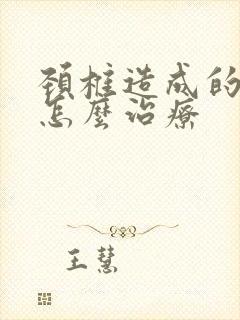 頸柱造成的
怎麼治療
王慧